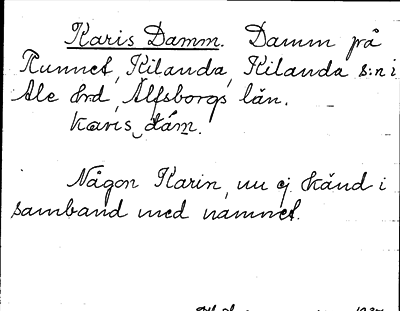 Karis Damm. Damm på
Runnet, Kilanda, Kilanda s:n i
Ale hrd, Älfsborgs län.
karis dám.
Någon Karin, nu ej känd i
samband med namnet.